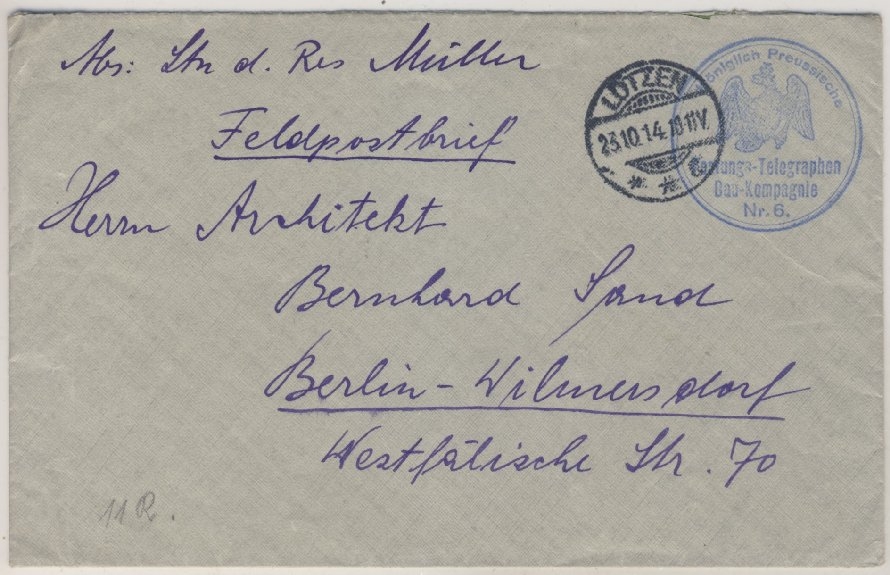 Abs: Ltn d. Res Müller
Feldpostbrief
Herrn Architekt
Bernhard Sand
Berlin-Wilmersdorf
Westfälische Str. 70
LÖTZEN
23.10.14.
* *
Königlich Preussische
Festungs-Telegraphen
Bau-Kompagnie
Nr. 6.
11 R.